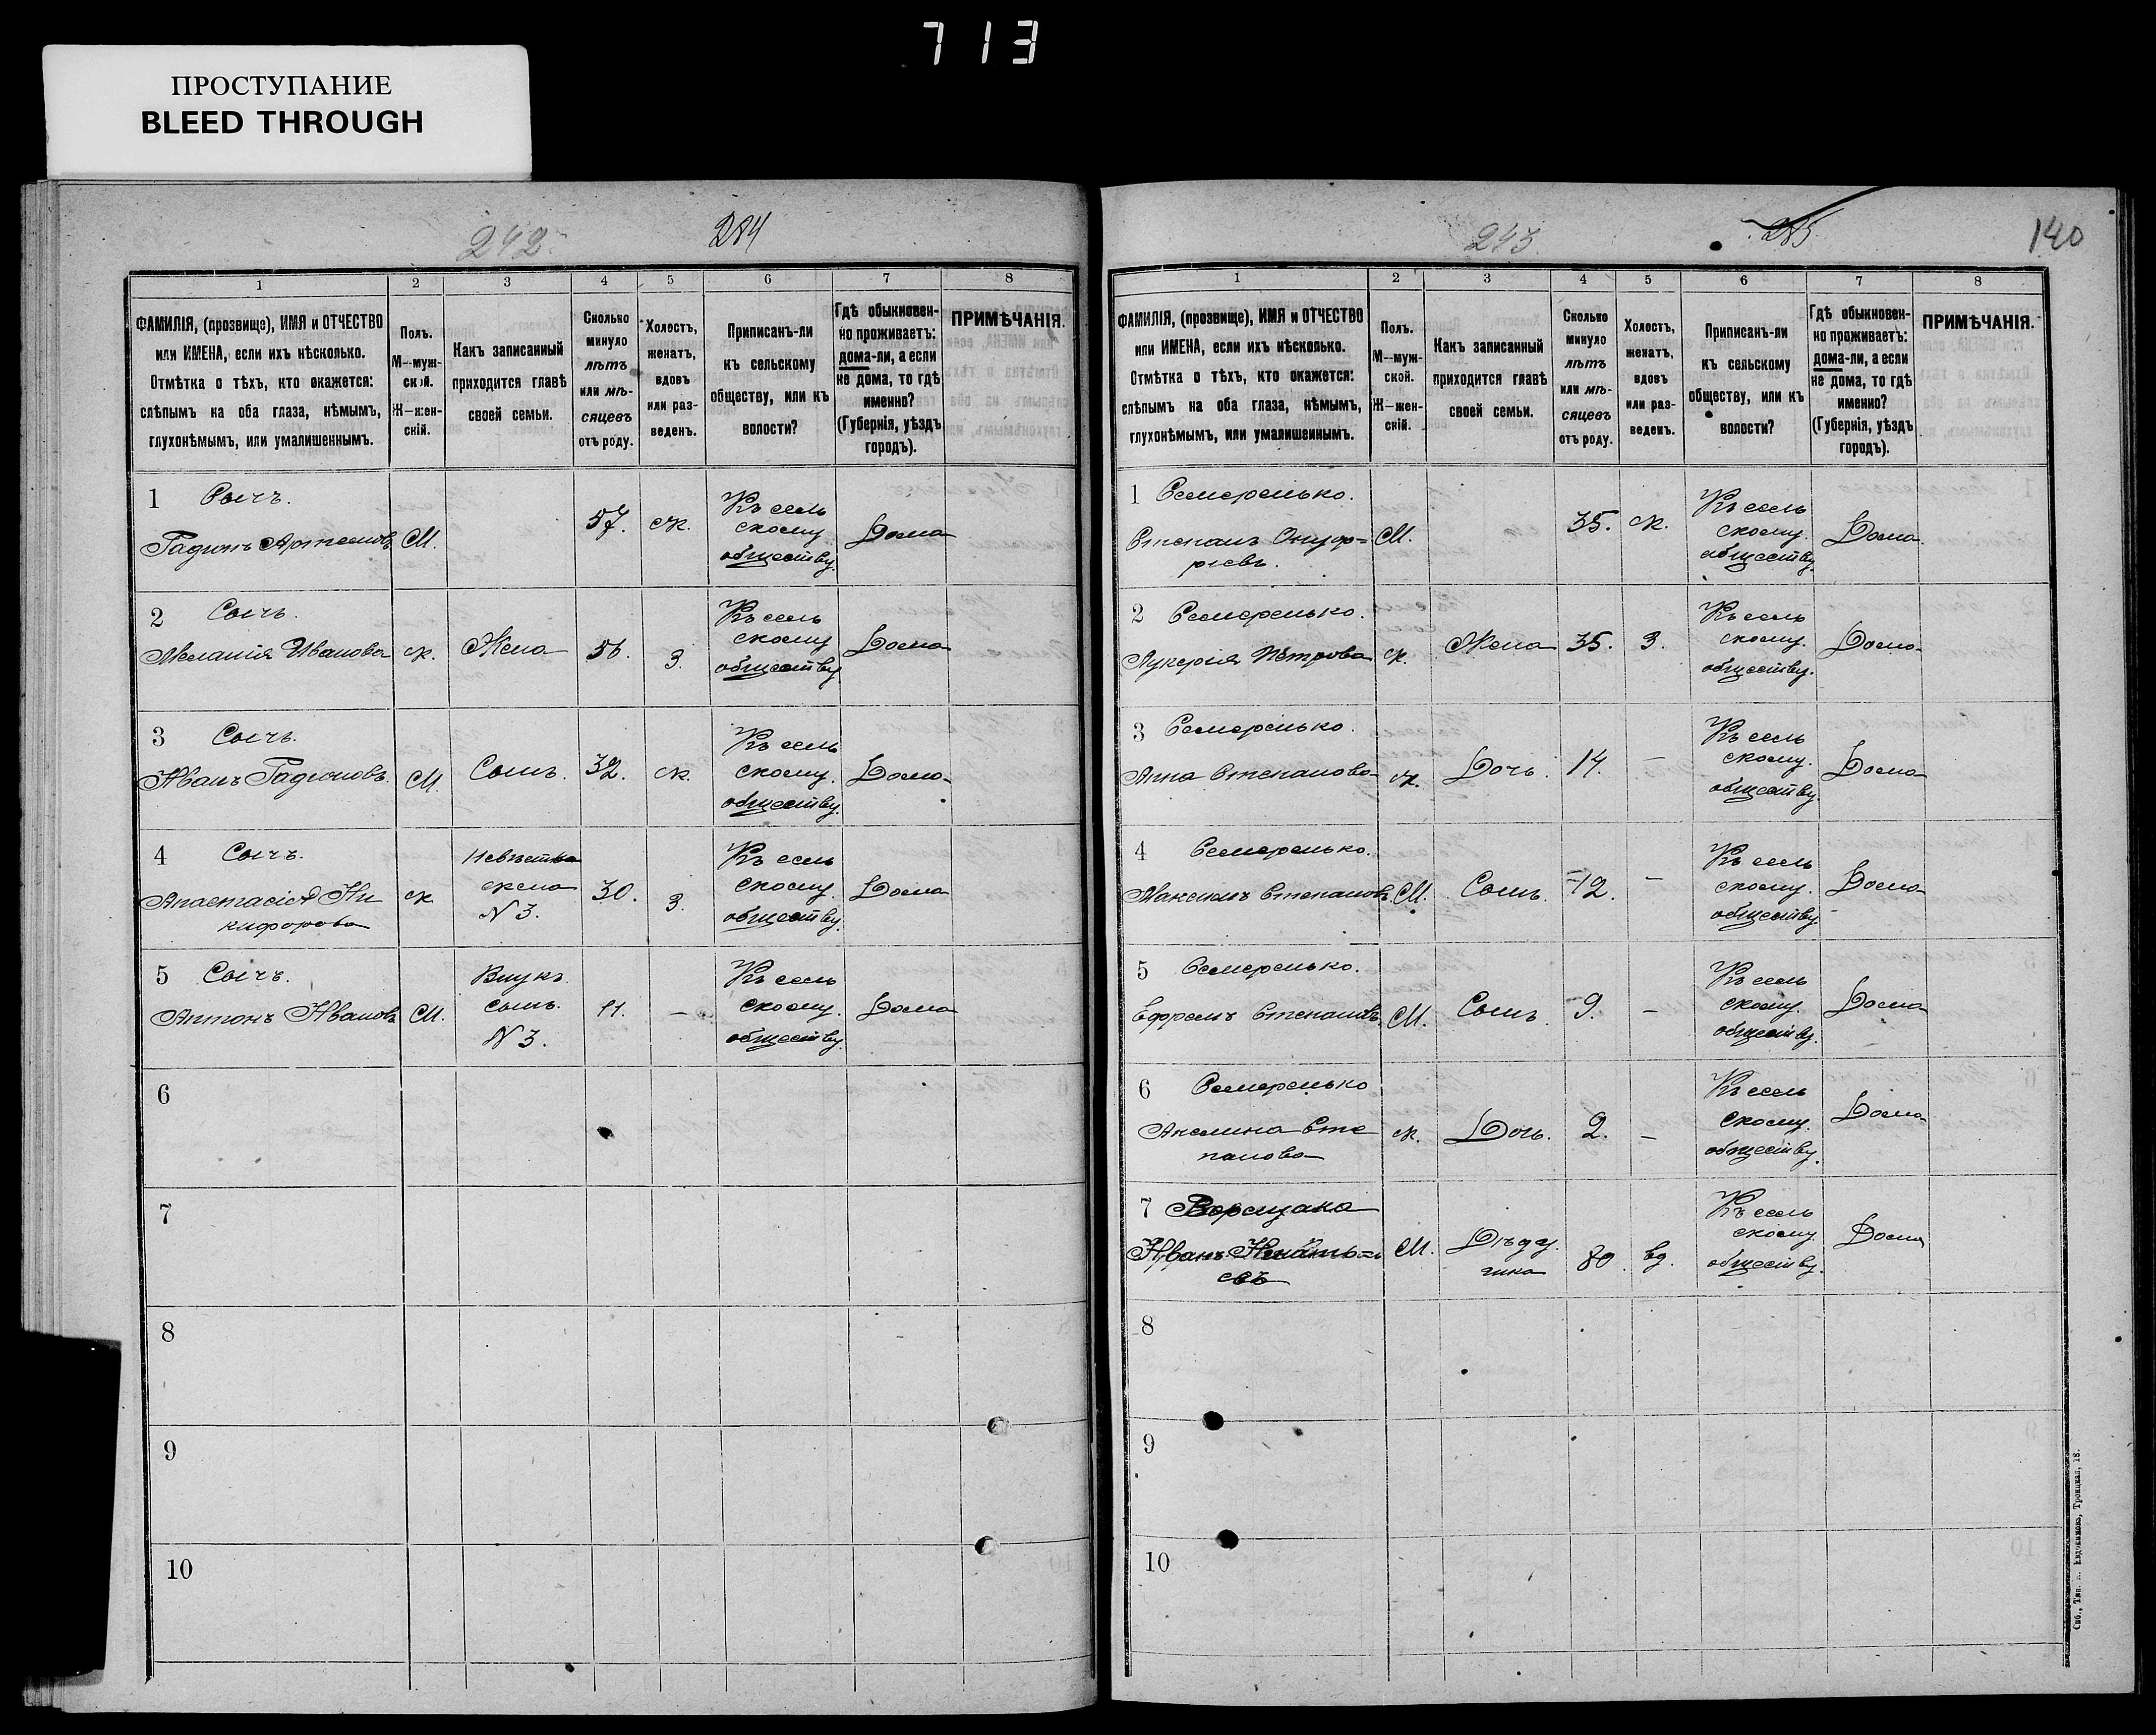 713
ПРОСТУПАНИЕ
BLEED THROUGH
242.
284
1 2 3 4 5 6 7 8
ФАМИЛІЯ, (прозвище), ИМЯ и ОТЧЕСТВО или ИМЕНА, если ихъ нѣсколько. Отмѣтка о тѣхъ, кто окажется: слѣпымъ на оба глаза, нѣмымъ, глухонѣмымъ, или умалишеннымъ.
Полъ. М—мужской. Ж—женскій.
Какъ записанный приходится главѣ своей семьи.
Сколько минуло лѣтъ или мѣсяцевъ отъ роду.
Холостъ, женатъ, вдовъ или разведенъ.
Приписанъ-ли къ сельскому обществу, или къ волости?
Гдѣ обыкновенно проживаетъ: дома-ли, а если не дома, то гдѣ именно? (Губернія, уѣздъ городъ).
ПРИМѢЧАНІЯ.
1 Сычъ.
Гадионъ Артемовъ М. 57. ж. Къ сельскому обществу. Дома
2 Сычъ.
Меланія Иванова ж. Жена 56. З. Къ сельскому обществу Дома
3 Сычъ.
Иванъ Гадионовъ. М. Сынъ. 32. ж. Къ сельскому. обществу. Дома
4 Сычъ.
Анастасія Никифорова ж. Невѣстка жена N 3. 30. З. Къ сельскому. обществу. Дома
5 Сычъ.
Антонъ Ивановъ М. Внукъ. сынъ. N 3. 11. — Къ сельскому. обществу. Дома
6
7
8
9
10
243.
285.
140
1 2 3 4 5 6 7 8
ФАМИЛІЯ, (прозвище), ИМЯ и ОТЧЕСТВО или ИМЕНА, если ихъ нѣсколько. Отмѣтка о тѣхъ, кто окажется: слѣпымъ на оба глаза, нѣмымъ, глухонѣмымъ, или умалишеннымъ.
Полъ. М—мужской. Ж—женскій.
Какъ записанный приходится главѣ своей семьи.
Сколько минуло лѣтъ или мѣсяцевъ отъ роду.
Холостъ, женатъ, вдовъ или разведенъ.
Приписанъ-ли къ сельскому обществу, или къ волости?
Гдѣ обыкновенно проживаетъ: дома-ли, а если не дома, то гдѣ именно? (Губернія, уѣздъ городъ).
ПРИМѢЧАНІЯ.
1 Семеренько.
Степанъ Онуфріевъ. М. 35. ж. Къ сельскому. обществу. Дома
2 Семеренько.
Лукерія Петрова ж. Жена 35. З. Къ сельскому. обществу. Дома
3 Семеренько.
Анна Степанова ж. Дочь. 14. — Къ сельскому. обществу. Дома
4 Семеренько.
Максимъ Степановъ. М. Сынъ. 12. — Къ сельскому. обществу. Дома
5 Семеренько.
Ефремъ Степановъ. М. Сынъ. 9. — Къ сельскому. обществу. Дома
6 Семеренько
Акелина Степанова ж. Дочь. 2. — Къ сельскому. обществу. Дома
7
Иванъ М. Дѣдушка 80. вд. Къ сельскому. обществу. Дома
8
9
10
Спб., Тип. Евдокимова, Троицкая, 18.